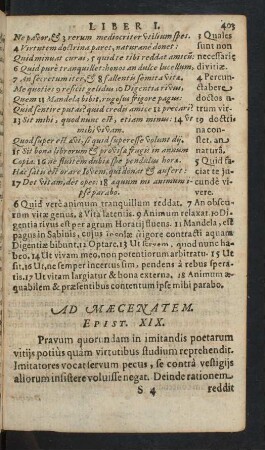 LIBER I. 403
Ne pavor, & 3 rerum mediocriter utilium spes.
4 Virtutem doctrina paret, naturane donet:
Quid minuat curas, quid te tibi reddat amicũ:
6 Quid purè tranquillet: honos an dulce lucellum,
7 An secretum iter, & 8 fallentis semita vitæ.
Me quoties 9 reficit gelidus 10 Digentia rivus,
Quem 11 Mandela bibit, rugosus frigore pagus:
Quid sentire putas? quid credis amice 12 precari?
13 Sit mihi, quod nunc est, etiam minus: 14 ut
mihi vivam.
Quod superest ævi, si quid superesse volunt dij.
15 Sit bona librorum & provisæ frugis in annum
Copia. 16 ne fluitem dubiæ spe pendulus horæ.
Hæc satis est orare Iovem, qui donat & aufert:
17 Det vitam, det opes: 18 æquum mi animum i-
pse parabo.
1 Quales
sunt non
necessariæ
divitiæ.
4 Percun-
ctabere
doctos n
trum vir-
19 doctri-
na con-
stet, an
natura.
5 Quid fa-
ciat te ju-
cundè vi-
vere.
6 Quid verè animum tranquillum reddat. 7 An obscu-
rum vitæ genus. 8 Vita latentis. 9 Animum relaxat. 10 Di-
gentia rivus est per agrum Horatij fluens. 11 Mandela, est
pagus in Sabinis, cujus incolæ frigore contracti aquam
Digentiæ bibunt. 12 Optare. 13 Ut servem, quod nunc ha-
beo. 14 Ut vivam meo, non potentiorum arbitratu. 15 Ut
sit. 15 Ut, ne semper incertus sim, pendens à rebus spera-
tis. 17 Ut vitam largiatur & bona externa. 18 Animum æ-
quabilem & præsentibus contentum ipse mihi parabo.
AD MÆCENATEM.
EPIST. XIX.
Pravum quorundam in imitandis poetarum
vitijs potiùs quàm virtutibus studium reprehendit.
Imitatores vocat servum pecus, se contrà vestigijs
aliorum insistere voluisse negat. Deinde rationem
S 4 reddit